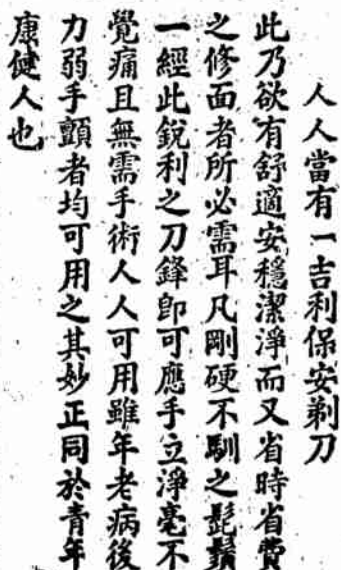 人人當有一吉利保安剃刀
此乃欲有舒適安穩潔淨而又省時省費
之修面者所必需耳凡剛硬不馴之髭鬚
一經此銳利之刀鋒卽可應手立淨毫不
覺痛且無需手術人人可用雖年老病後
力弱手顫者均可用之其妙正同於青年
康健人也